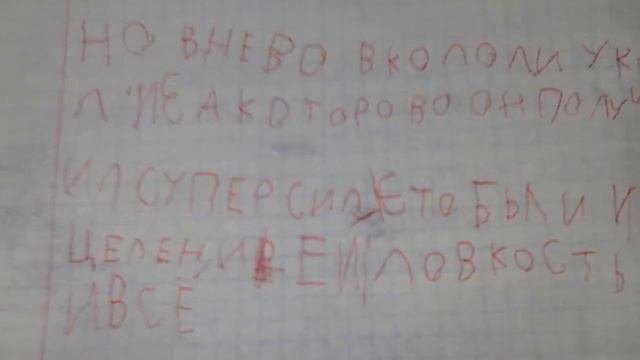 НО ВНЕВО ВКОЛОЛИ УК
Л ИЕА КОТОРОВО ОН ПОЛУЧ
ИЛ СУПЕРСИЛ ЕТО БЫЛИ И
ЦЕЛЕНИЕ И ЛОВКОСТЬ
И ВСЁ